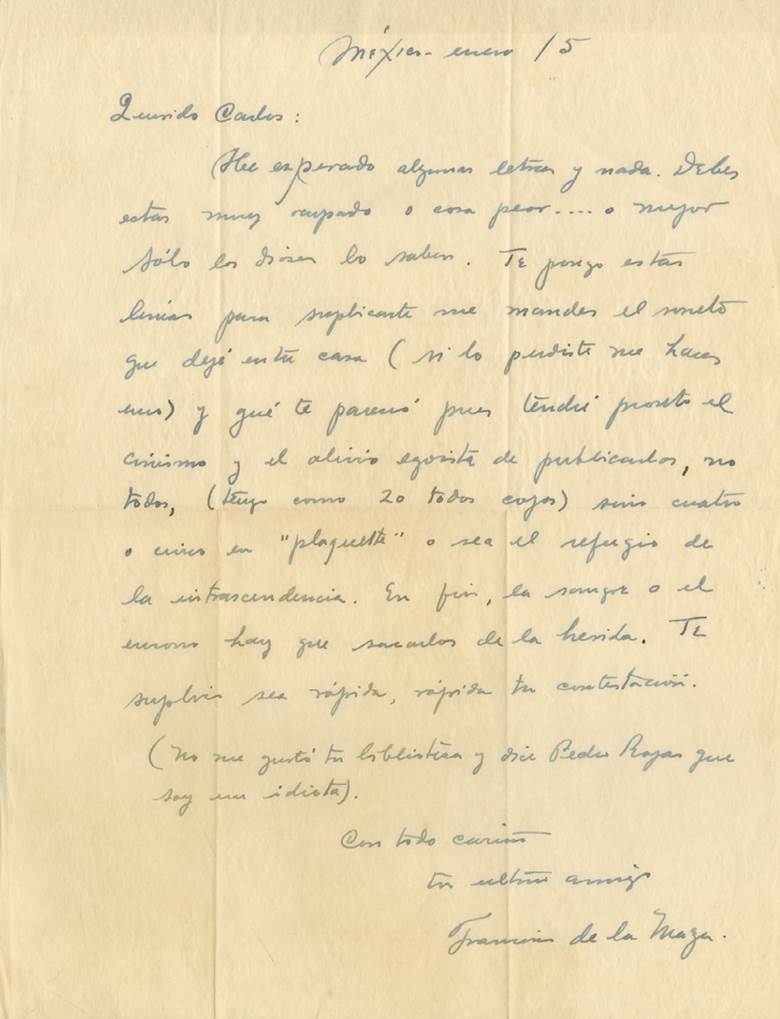 México - enero 15
Querido Carlos:
He esperado algunas letras y nada. Debes
estar muy ocupado o cosa peor.... o mejor
Sólo los dioses lo saben. Te pongo estas
líneas para suplicarte me mandes el soneto
que dejé en tu casa (si lo perdiste me haces
uno) y qué te pareció pues tendré pronto el
cinismo y el alivio egoísta de publicarlos, no
todos, (tengo como 20 todos cojos) sino cuatro
o cinco en "plaquette" o sea el refugio de
la intrascendencia. En fin, la sangre o el
encono hay que sacarlos de la herida. Te
suplico sea rápida, rápida tu contestación.
(No me gustó tu biblioteca y dice Pedro Rojas que
soy un idiota).
Con todo cariño
tu último amigo
Francisco de la Maza.